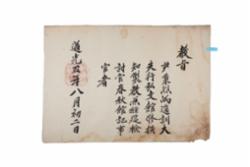 敎旨
尹爲通訓大
夫行弘文館修撰
知製敎兼經筵檢
討官春秋館記事
官者
道光年八月初二日